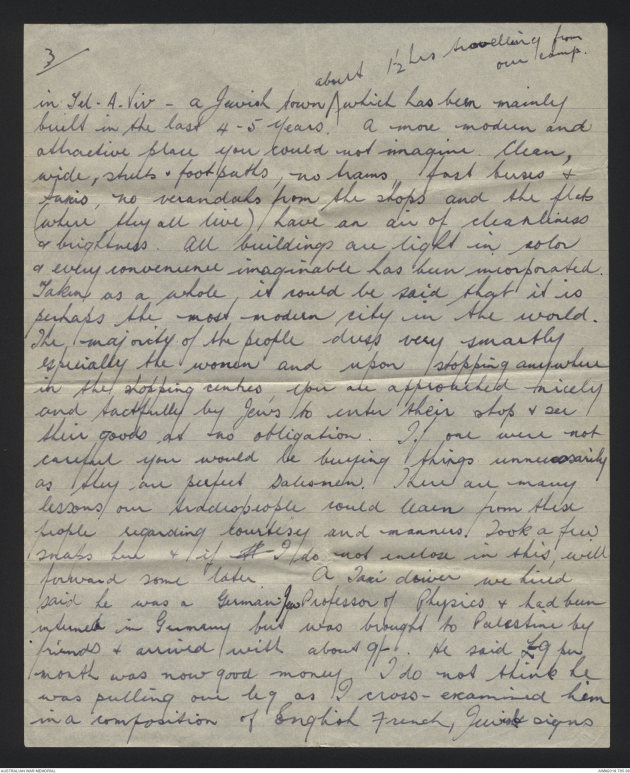 3/
about 1½ hrs travelling from
our camp.
in Tel-A-Viv - a Jewish town /\ which has been mainly
built in the last 4-5 years. A more modern and
attractive place you could not imagine. Clean,
wide, streets & footpaths, no trams, fast buses &
taxis, no verandahs from the shops and the flats
(where they all live) have an air of cleanliness
& brightness. All buildings are light in color
& every convenience imaginable has been incorporated.
Taken as a whole, it could be said that it is
perhaps the most modern city in the world.
The majority of the people dress very smartly
especially the women and upon stopping anywhere
in the shopping centres you are approached nicely
and tactfully by Jews to enter their shop & see
their goods at no obligation. If one were not
careful you would be buying things unnecessarily
as they are perfect salesmen. There are many
lessons our tradespeople could learn from these
people regarding courtesy and manners. Took a few
snaps here & if I do not enclose in this, will
forward some later. A Taxi driver we hired
said he was a German Jew Professor of Physics & had been
interned in Germany but was brought to Palestine by
friends & arrived with about 9/-. He said £9 per
month was now good money. I do not think he
was pulling our leg as I cross-examined him
in a composition of English French, Jewish signs
AUSTRALIAN WAR MEMORIAL